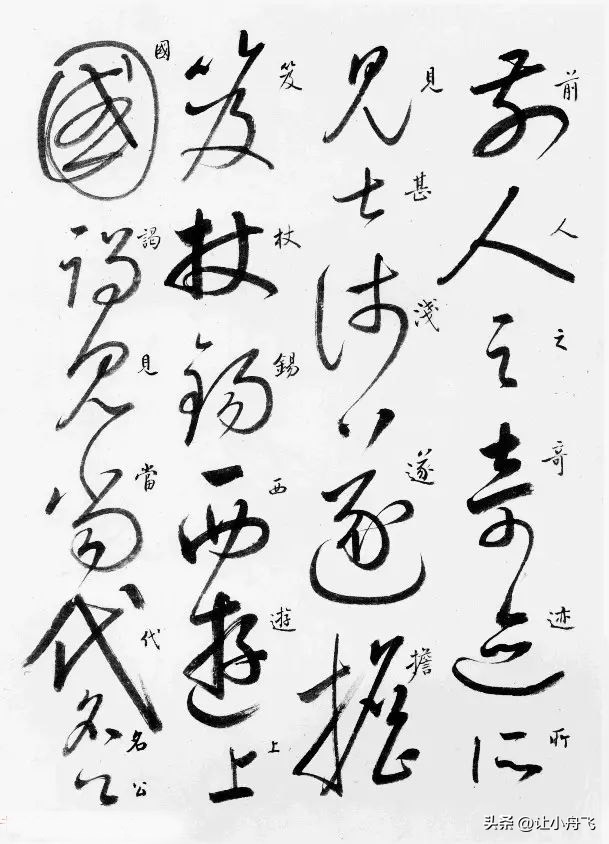 前人之奇迹所
見甚淺遂擔
笈杖錫西遊上
國謁見當代名公
头条 @让小舟飞